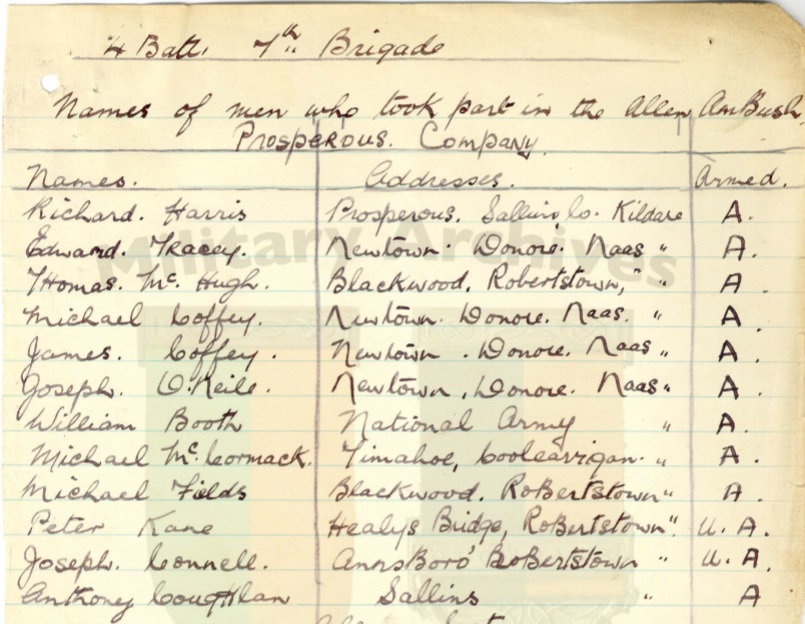 4 Batt. 7th Brigade
Names of men who took part in the Allen Ambush
Prosperous. Company.
Names. Addresses. Armed.
Richard. Harris Prosperous. Sallins, Co. Kildare A.
Edward. Tracey. Newtown. Donore. Naas " A.
Thomas. Mc. Hugh. Blackwood, Robertstown, " A.
Michael Coffey. Newtown. Donore. Naas. " A.
James. Coffey. Newtown. Donore. Naas " A.
Joseph. O.Neile. Newtown, Donore. Naas " A.
William Booth National Army " A.
Michael Mc. Cormack. Timahoe, Cooleárrigan. " A.
Michael Fields Blackwood. Robertstown " A.
Peter Kane Healys Bridge, Robertstown ". U. A.
Joseph. Connell. Annsboro' Robertstown " U. A.
Anthony Coughlan Sallins " A
Military Archives